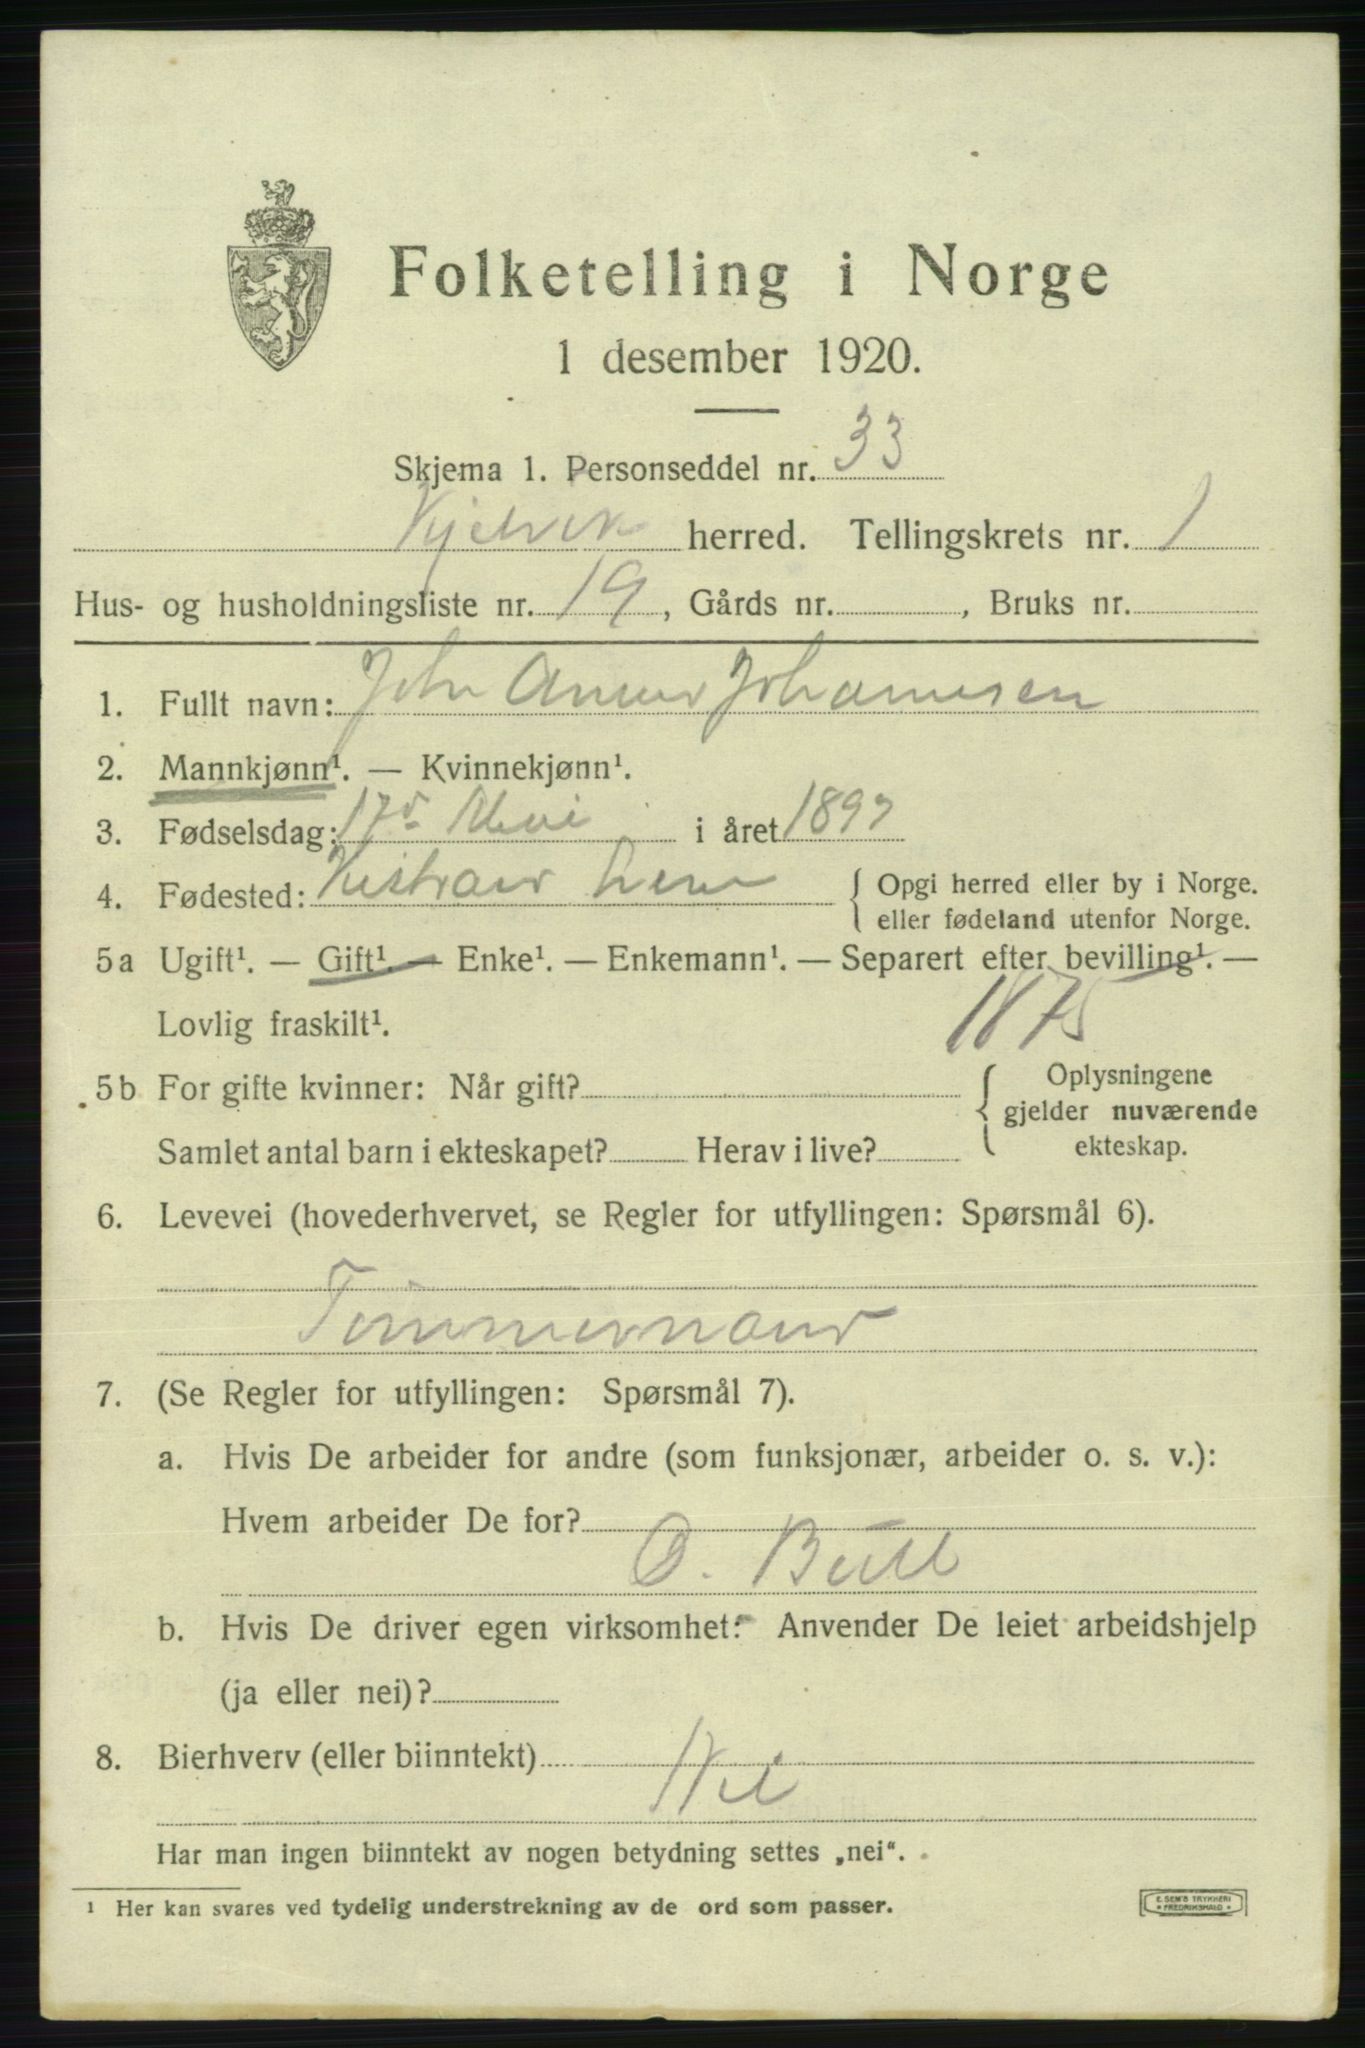 Folketelling i Norge
1 desember 1920.
Skjema 1. Personseddel nr. 33
Kjelvik herred. Tellingskrets nr. 1
Hus- og husholdningsliste nr. 19, Gårds nr. , Bruks nr.
1. Fullt navn: Johannesen
2. Mannkjønn¹. — Kvinnekjønn¹.
3. Fødselsdag: 17 Mai i året 1897
4. Fødested: { Opgi herred eller by i Norge.
eller fødeland utenfor Norge.
5a Ugift¹. — Gift¹. — Enke¹. — Enkemann¹. — Separert efter bevilling¹. —
Lovlig fraskilt¹. 1875
5b For gifte kvinner: Når gift? { Oplysningene
gjelder nuværende
Samlet antal barn i ekteskapet? Herav i live? ekteskap.
6. Levevei (hovederhvervet, se Regler for utfyllingen: Spørsmål 6).
Tømmermann
7. (Se Regler for utfyllingen: Spørsmål 7).
a. Hvis De arbeider for andre (som funksjonær, arbeider o. s. v.):
Hvem arbeider De for?
O. Bull
b. Hvis De driver egen virksomhet: Anvender De leiet arbeidshjelp
(ja eller nei)?
8. Bierhverv (eller biinntekt)
Nei
Har man ingen biinntekt av nogen betydning settes „nei“.
¹ Her kan svares ved tydelig understrekning av de ord som passer.
E. SEM'S TRYKKERI
FREDRIKSHALD